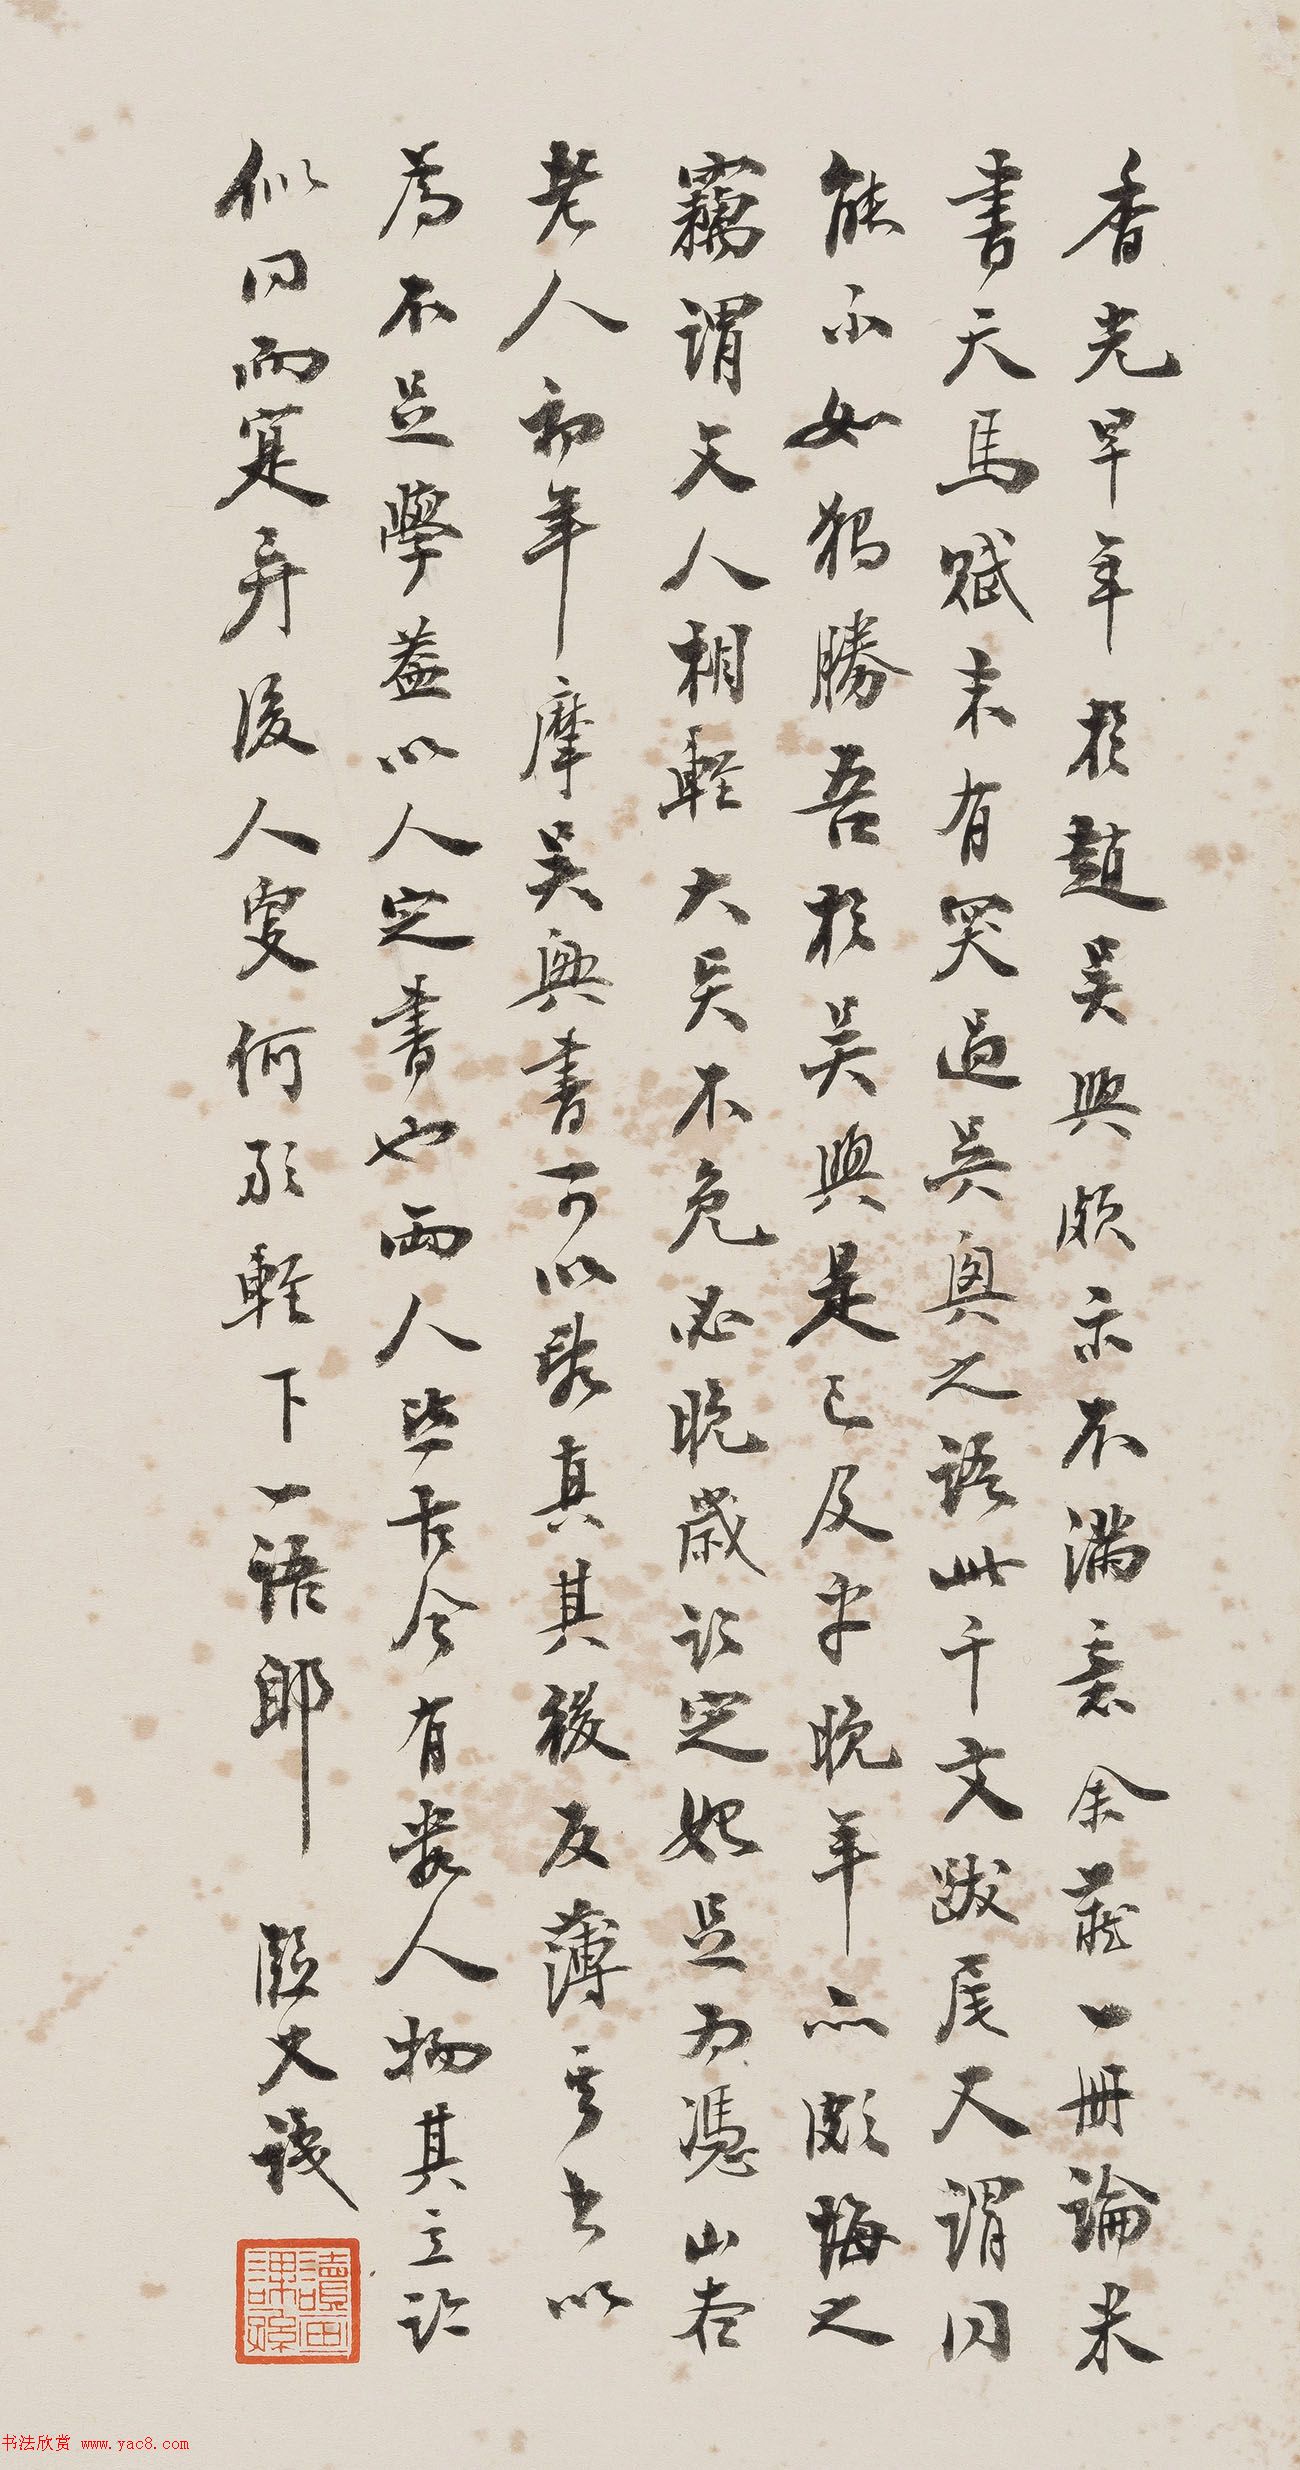 香光早年於趙吳興頗示不滿意余藏一冊論米
書天馬賦末有哭過吳興之語此千文跋尾又謂同
能不如獨勝吾於吳興是已及乎晚年亦頗悔之
竊謂文人相輕大吳不免必晚歲論定始足為憑山老
老人初年摩吳興書可以亂真其後反薄其書以
為不足學蓋以人定書也兩人皆古今有數人物其立論
似同而寔異後人更何敢輕下一語耶
書法欣赏 www.yac8.com